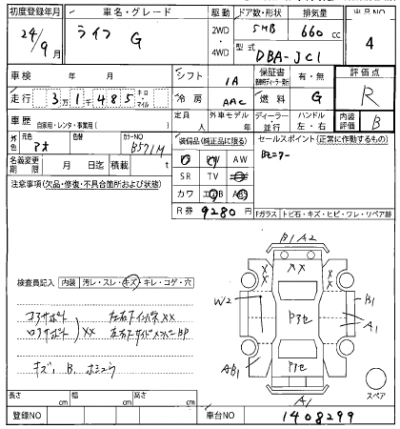 初度登録年月 車名・グレード 駆動 ドア数・形状 排気量 出品NO
24/9月 ライフ G 2WD・4WD 5HB 660 cc 4
型式 DBA-JC1
車検 年 月 シフト IA 保証書 有・無 評価点 R
走行 3万1千485 キロ・マイル 冷房 AAC 燃料 G
車歴 自家用・レンタ・事業用( ) 定員 人 外車モデル 年 ディーラー・並行 ハンドル 左・右 内装評価 B
外色 元色 アオ カラーNO B571M 装備品(純正品に限る) セールスポイント(正常に作動するもの)
PW AW Bモニター
名義変更期限 月 日迄 積載 t SR TV
注意事項(欠品・修復・不具合箇所および状態) カワ
R券 9280 円
Fガラス トビ石・キズ・ヒビ・ワレ・リペア跡
B1 A2
XX
検査員記入 内装 汚レ・スレ・キズ・キレ・コゲ・穴
W2 アタセ B1
コアサポート 左右Fインパネ XX A1
ロアサポート XX 左右Fサイドメンバー BP
AB1 アタセ
キズ、B、ホシュウ
A1 スペア
長さ cm 幅 cm 高さ cm
登録NO 車台NO 1408299